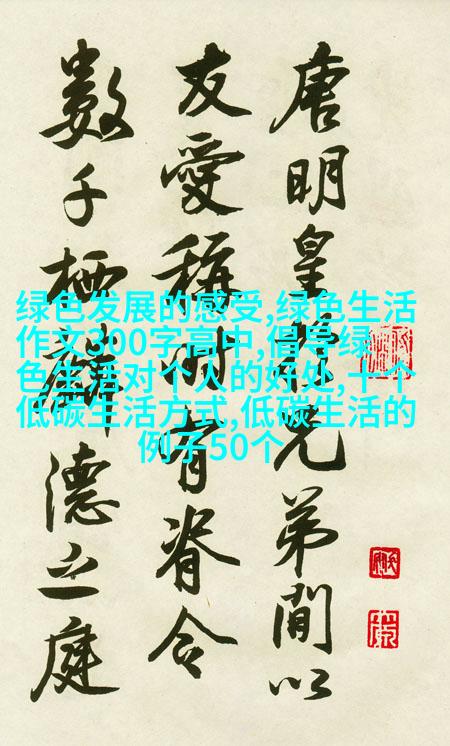 唐明皇兄弟間以
友愛稱時有脊令
數千栖麟德之庭
绿色发展的感受,绿色生活
作文300字高中,倡导绿
色生活对个人的好处,十个
低碳生活方式,低碳生活的
例子50个